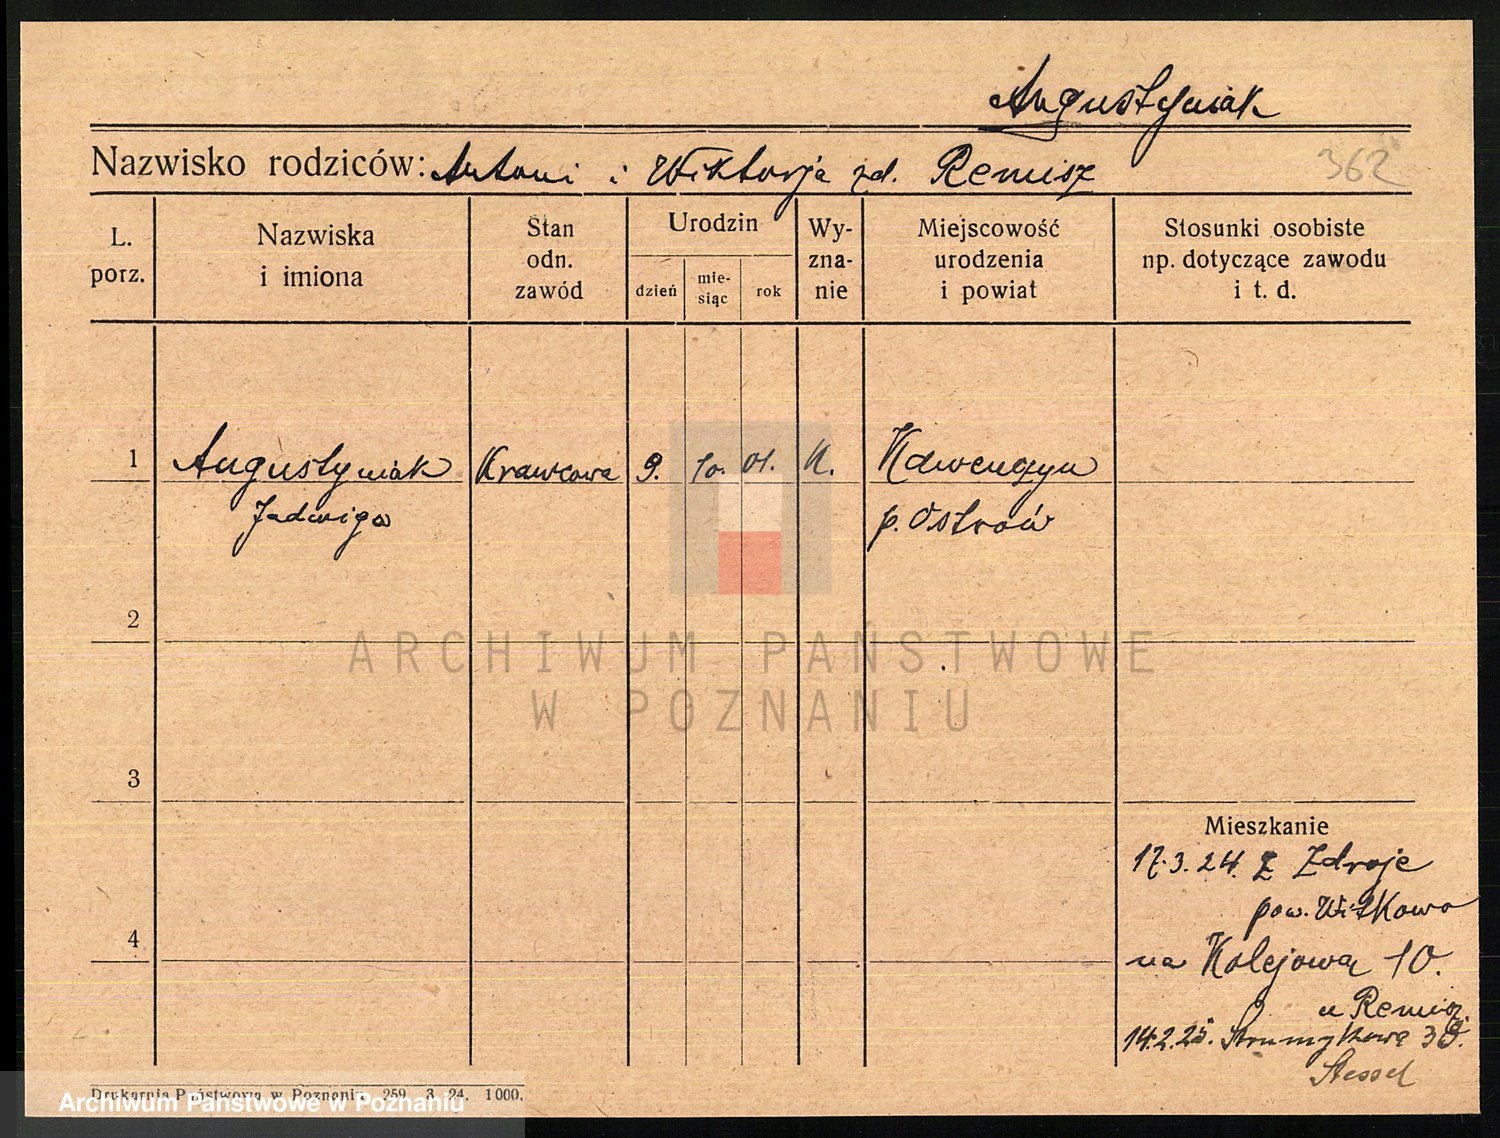 Augustyniak
Nazwisko rodziców: Antoni i Wiktorja zd. Remisz
362
L. porz.
Nazwiska i imiona
Stan odn. zawód
Urodzin
dzień
mie-
siąc
rok
Wy-
zna-
nie
Miejscowość
urodzenia
i powiat
Stosunki osobiste
np. dotyczące zawodu
i t. d.
1 Augustyniak Krawcowa 9. 10. 01. K.
Jadwiga p. Ostrów
2
3
4
Mieszkanie
17.3.24. z Zdroje
pow. Witkowo
na Kolejową 10.
u Remisz
14.2.25. Strumykowa 38.
Stessel
Drukarnia Państwowa w Poznaniu 259. 3. 24. 1000.
ARCHIWUM PAŃSTWOWE
W POZNANIU
Archiwum Państwowe w Poznaniu